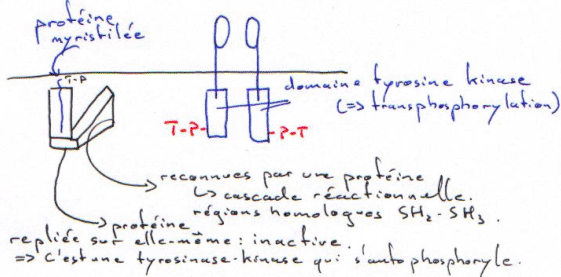 protéine
myristilée
T-P
domaine tyrosine kinase
(=> transphosphorylation)
T-P-
-P-T
reconnues par une protéine
↳ cascade réactionnelle.
régions homologues SH2-SH3.
protéine
repliée sur elle-même : inactive.
=> c'est une tyrosinase-kinase qui s'autophosphoryle.